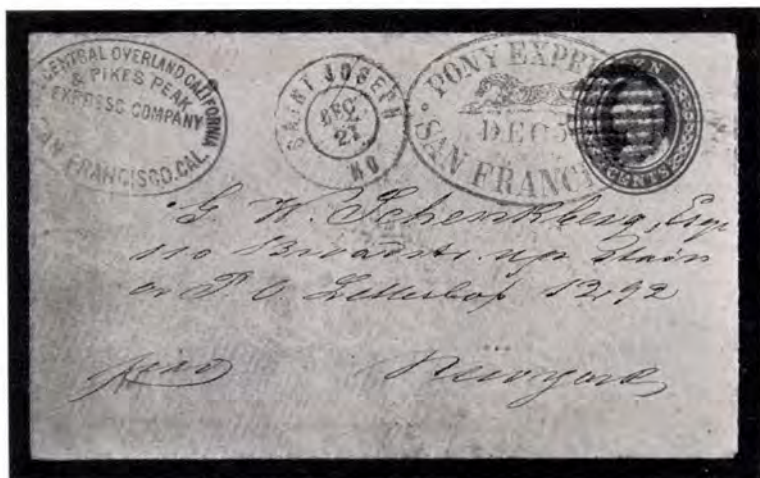 CENTRAL OVERLAND CALIFORNIA
& PIKES PEAK
EXPRESS COMPANY
SAN FRANCISCO, CAL.
SAINT JOSEPH
DEC
21
MO
PONY EXPRE
DEC
SAN FRANCI
TEN
CENTS
G. W. Schenkberg, Esqr
110 up stairs
or P. O. Letterbox 1292
Newyork